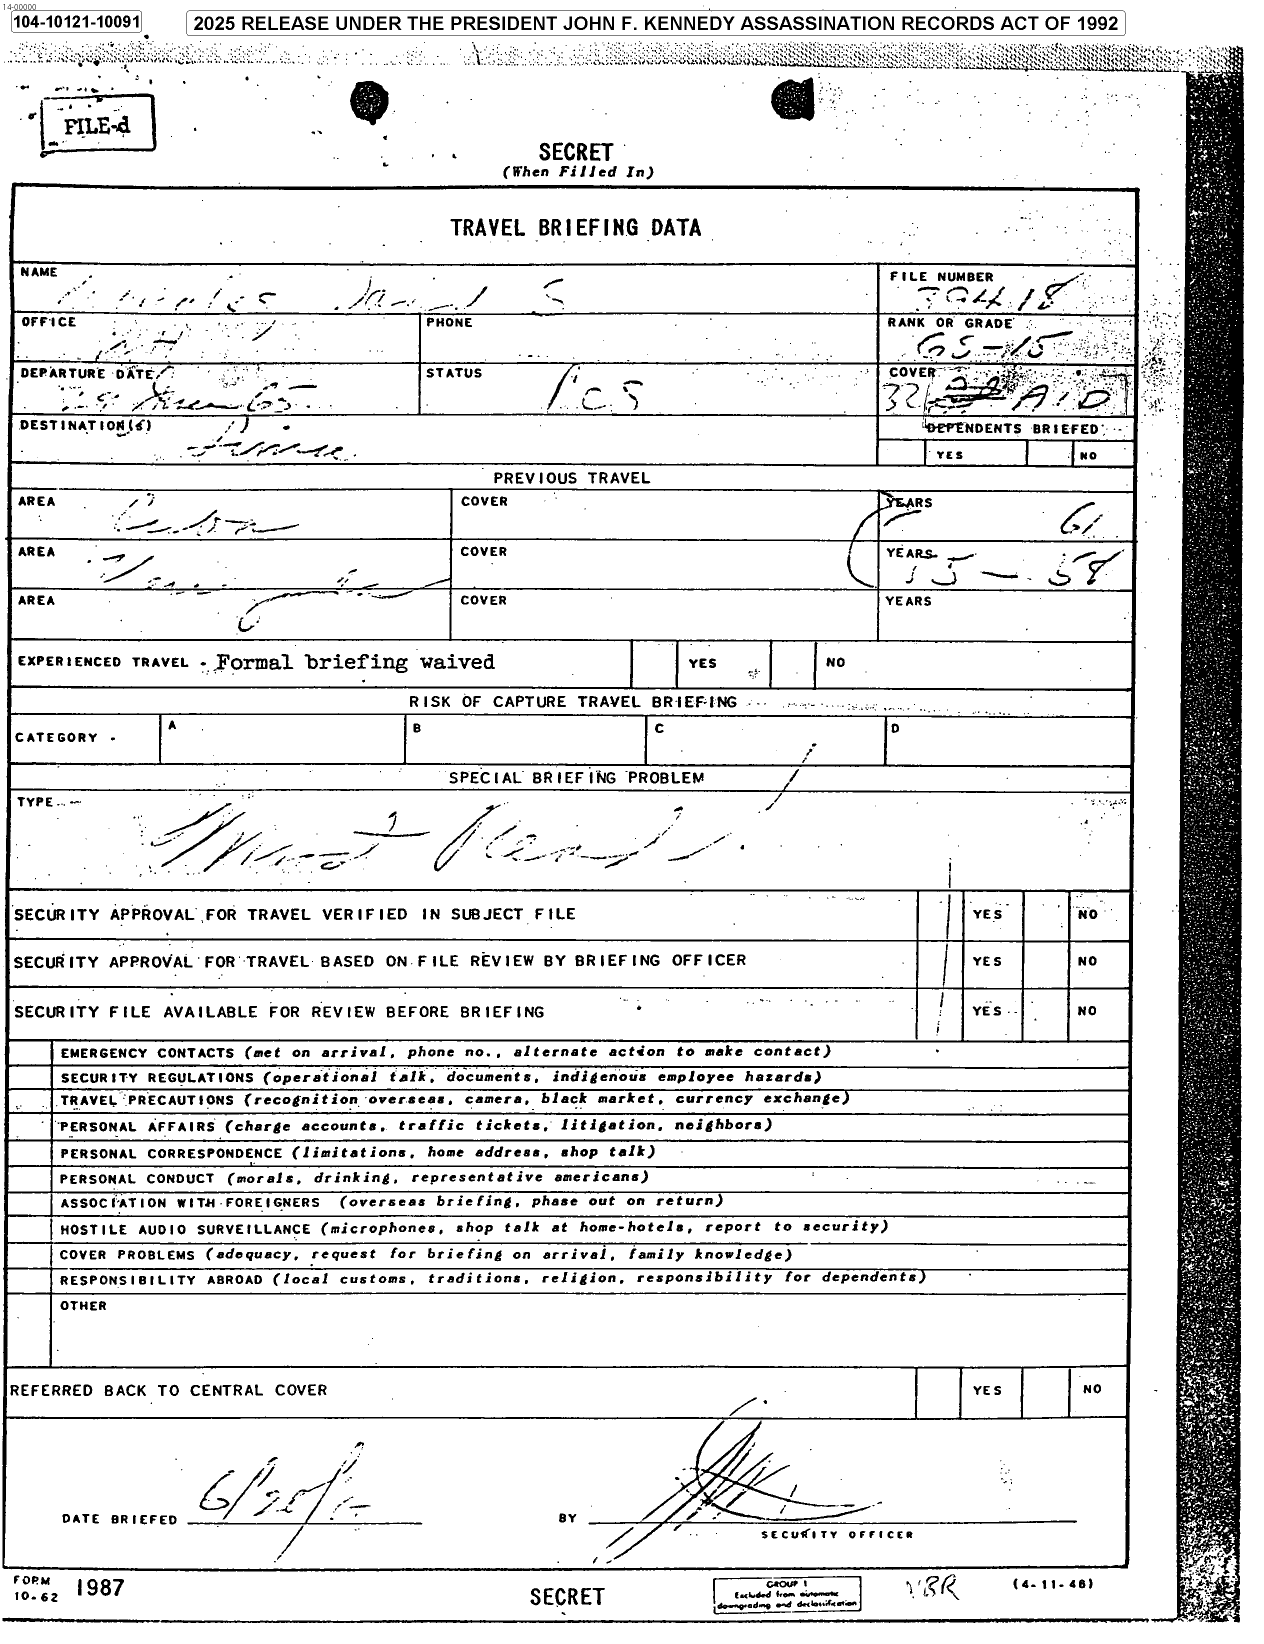 14-00000
104-10121-10091
2025 RELEASE UNDER THE PRESIDENT JOHN F. KENNEDY ASSASSINATION RECORDS ACT OF 1992
FILE-d
SECRET
(When Filled In)
TRAVEL BRIEFING DATA
NAME
David S
FILE NUMBER
39418
OFFICE
WH
PHONE
RANK OR GRADE
GS-15
DEPARTURE DATE
65
STATUS
PCS
COVER
AID
DESTINATION(S)
DEPENDENTS BRIEFED
YES NO
PREVIOUS TRAVEL
AREA Cuba COVER YEARS 61
AREA COVER YEARS 58
AREA COVER YEARS
EXPERIENCED TRAVEL - Formal briefing waived YES NO
RISK OF CAPTURE TRAVEL BRIEFING
CATEGORY - A B C D
SPECIAL BRIEFING PROBLEM
TYPE
SECURITY APPROVAL FOR TRAVEL VERIFIED IN SUBJECT FILE YES NO
SECURITY APPROVAL FOR TRAVEL BASED ON FILE REVIEW BY BRIEFING OFFICER YES NO
SECURITY FILE AVAILABLE FOR REVIEW BEFORE BRIEFING YES NO
EMERGENCY CONTACTS (met on arrival, phone no., alternate action to make contact)
SECURITY REGULATIONS (operational talk, documents, indigenous employee hazards)
TRAVEL PRECAUTIONS (recognition overseas, camera, black market, currency exchange)
PERSONAL AFFAIRS (charge accounts, traffic tickets, litigation, neighbors)
PERSONAL CORRESPONDENCE (limitations, home address, shop talk)
PERSONAL CONDUCT (morals, drinking, representative americans)
ASSOCIATION WITH FOREIGNERS (overseas briefing, phase out on return)
HOSTILE AUDIO SURVEILLANCE (microphones, shop talk at home-hotels, report to security)
COVER PROBLEMS (adequacy, request for briefing on arrival, family knowledge)
RESPONSIBILITY ABROAD (local customs, traditions, religion, responsibility for dependents)
OTHER
REFERRED BACK TO CENTRAL COVER YES NO
DATE BRIEFED BY
SECURITY OFFICER
FORM
10-62 1987
SECRET
GROUP 1
Excluded from automatic
downgrading and declassification
(4-11-48)